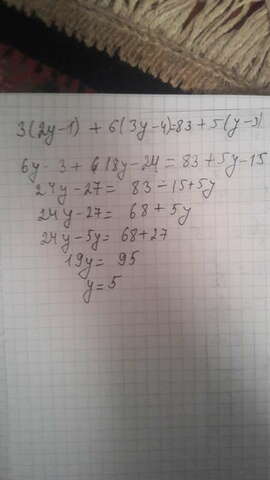 3(2y-1) + 6(3y-4)=83+5(y-3)
6y-3+18y-24=83+5y-15
24y-27= 83-15+5y
24y-27= 68+5y
24y-5y= 68+27
19y= 95
y=5